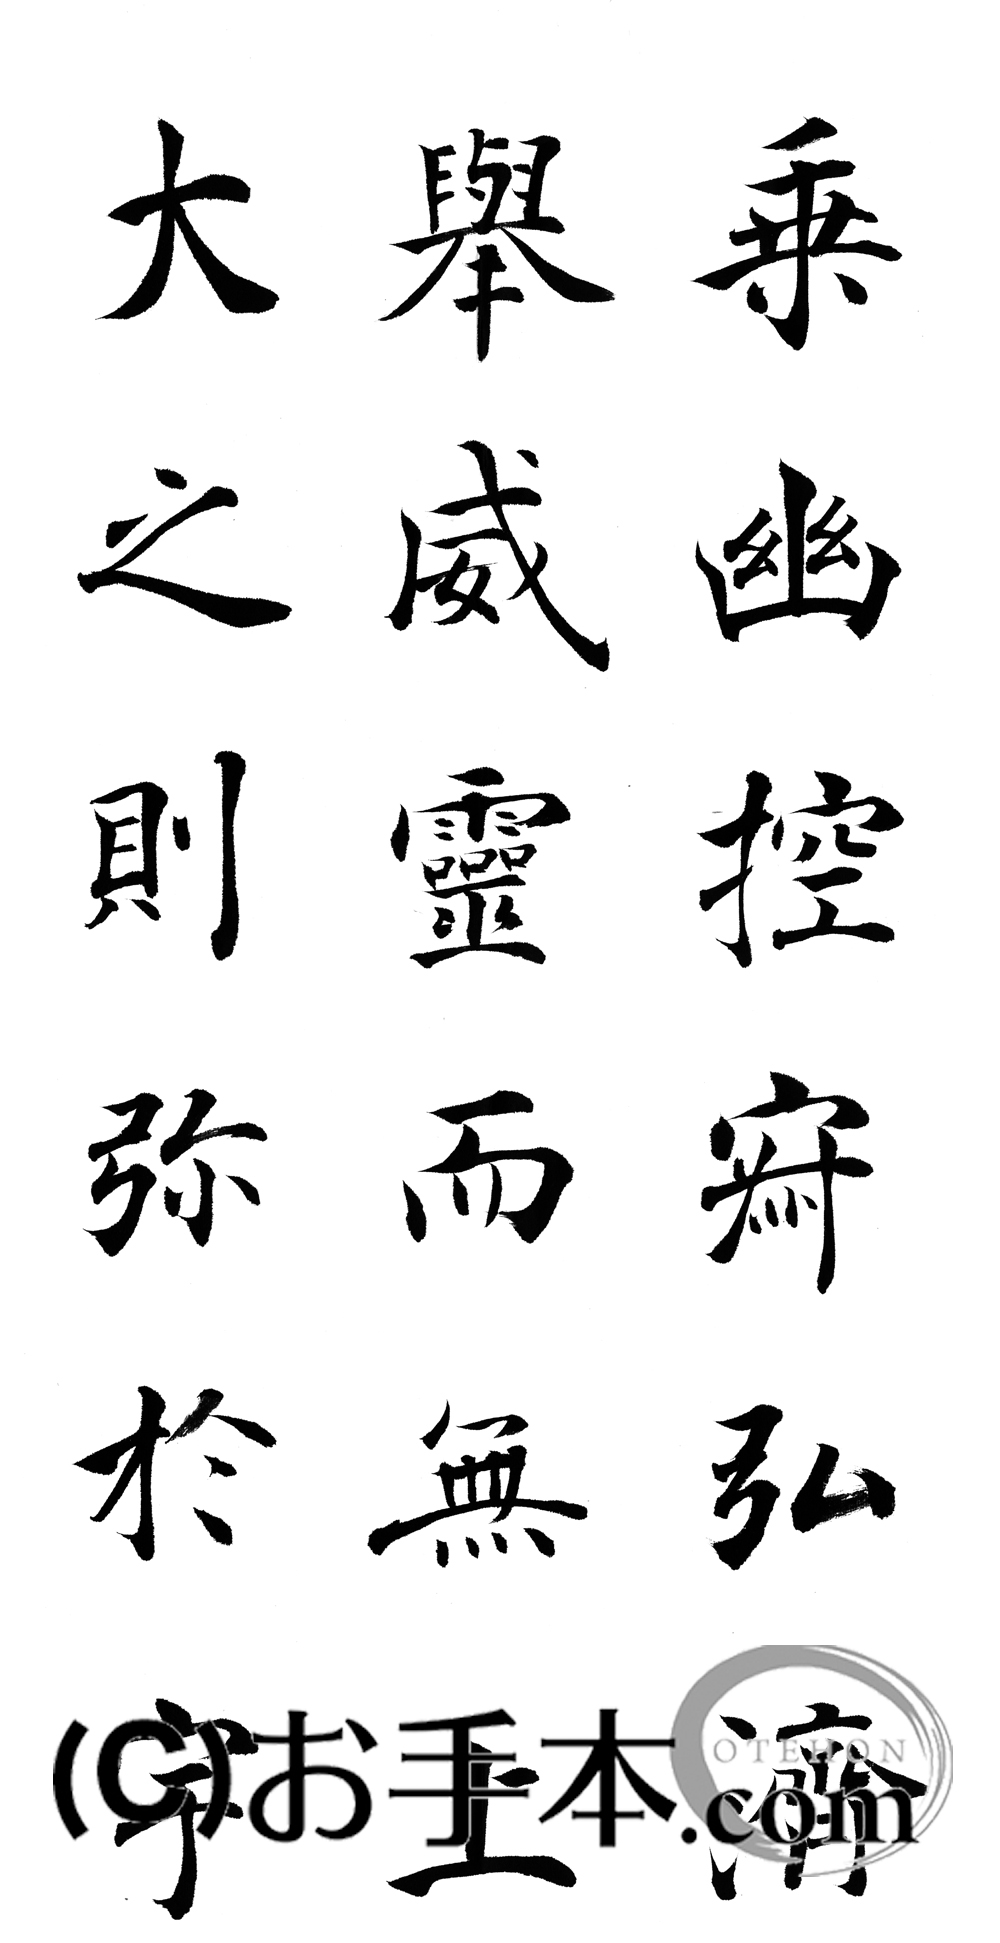 乗幽控寂弘濟
舉威靈而無上
大之則弥於宇
(C)お手本.com
OTEHON